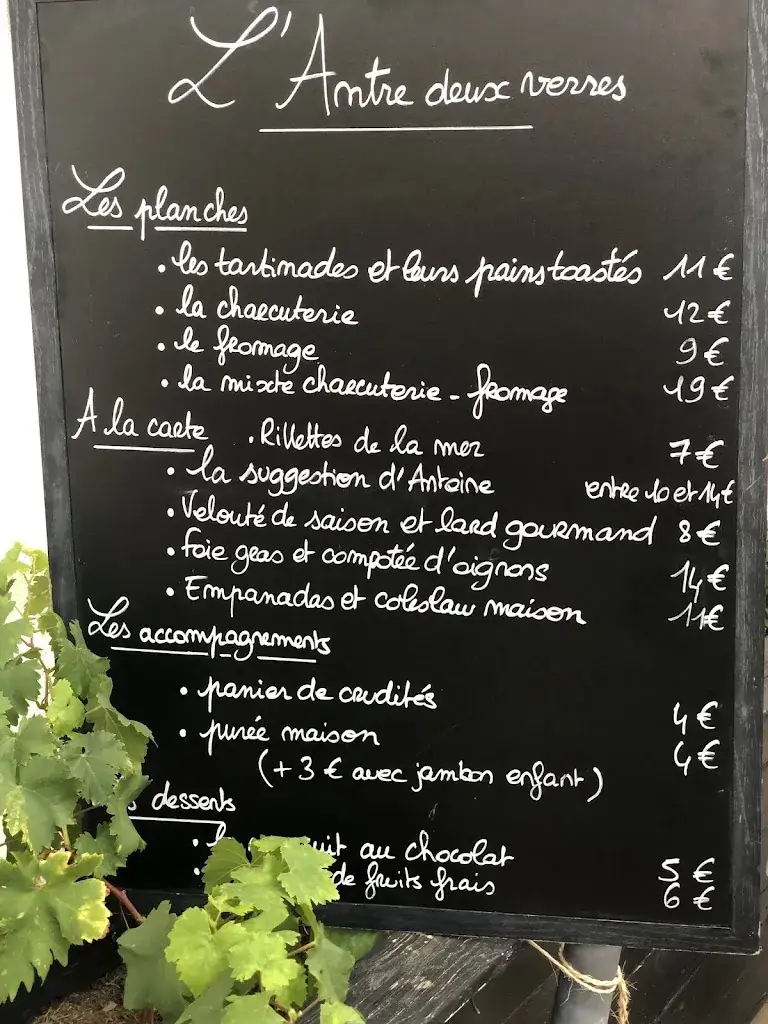 L'Antre deux verres
Les planches
. les tartinades et leurs pains toastés 11 €
. la charcuterie 12 €
. le fromage 9 €
. la mixte charcuterie - fromage 19 €
A la carte . Rillettes de la mer 7 €
. la suggestion d'Antoine entre 10 et 14 €
. Velouté de saison et lard gourmand 8 €
. foie gras et compotée d'oignons 14 €
. Empanadas et coleslaw maison 11 €
Les accompagnements
. panier de crudités 4 €
. purée maison 4 €
(+ 3 € avec jambon enfant)
desserts
au chocolat 5 €
de fruits frais 6 €